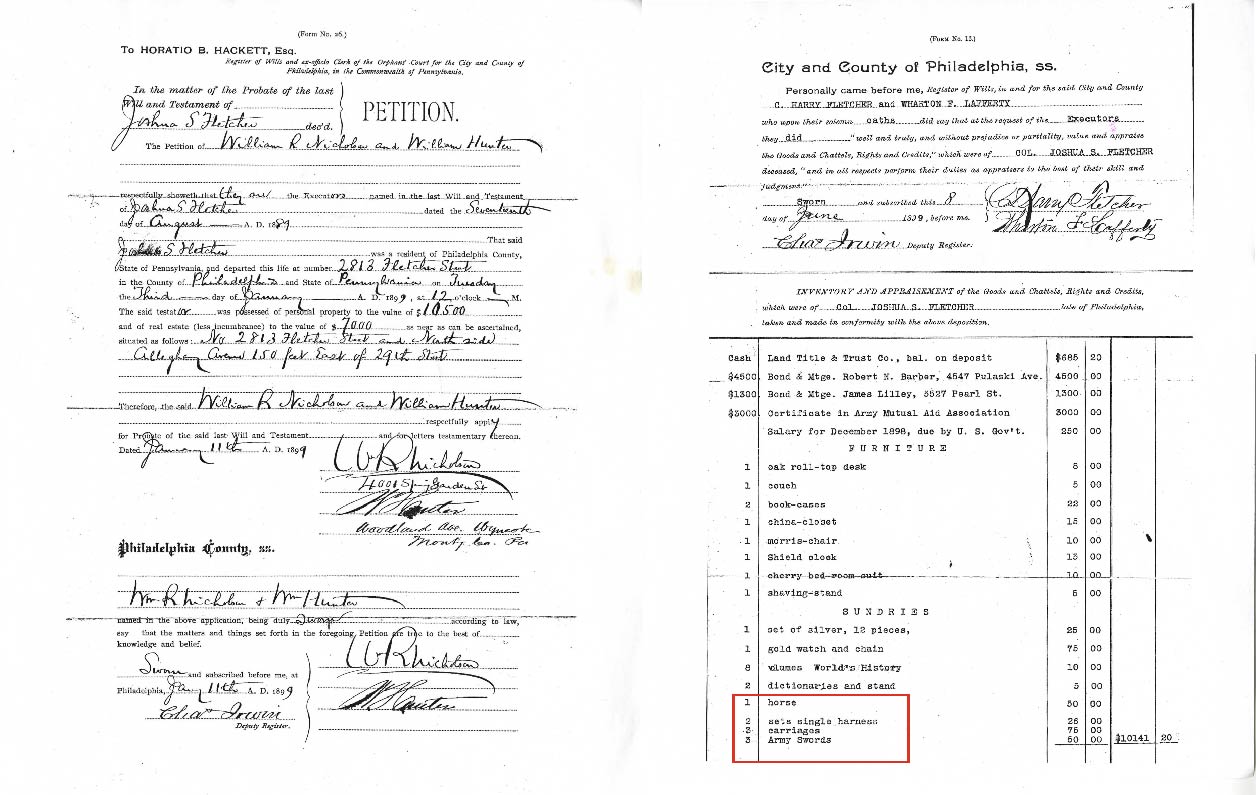 (Form No. 26.)
To HORATIO B. HACKETT, Esq.
Register of Wills and ex-officio Clerk of the Orphans' Court for the City and County of
Philadelphia, in the Commonwealth of Pennsylvania.
In the matter of the Probate of the last
Will and Testament of
Joshua S Fletcher dec'd.
PETITION.
The Petition of William R Nicholson and William Hunter
respectfully showeth that they are the Executors named in the last Will and Testament
of Joshua S. Fletcher dated the Seventeenth
day of August A. D. 1889
That said
S Fletcher was a resident of Philadelphia County,
State of Pennsylvania, and departed this life at number 2813 Fletcher Street
in the County of Philadelphia and State of Pennsylvania on Tuesday
the Third day of January A. D. 1899, at 12 o'clock M.
The said testator was possessed of personal property to the value of $10500
and of real estate (less incumbrance) to the value of $7000 as near as can be ascertained,
situated as follows: No 2813 Fletcher Street and North side
Allegheny Avenue 150 feet East of 29th Street
Therefore, the said William R Nicholson and William Hunter
respectfully apply
for Probate of the said last Will and Testament and for letters testamentary thereon.
Dated January 11th A. D. 1899
WR Nicholson
4001 Spring Garden St
Hunter
Woodland Ave. Wyncote
Montg Co. Pa
Philadelphia County, ss.
Wm R Nicholson & Wm Hunter
named in the above application, being duly Sworn according to law,
say that the matters and things set forth in the foregoing Petition are true to the best of
knowledge and belief.
Sworn and subscribed before me, at
Philadelphia, Jany 11th A. D. 1899
Chas Irwin
Deputy Register.
WR Nicholson
Hunter
(FORM No. 15.)
City and County of Philadelphia, ss.
Personally came before me, Register of Wills, in and for the said City and County
C. HARRY FLETCHER and WHARTON F. LAFFERTY
who upon their solemn oaths did say that at the request of the Executors
they did "well and truly, and without prejudice or partiality, value and appraise
the Goods and Chattels, Rights and Credits," which were of COL. JOSHUA S. FLETCHER
deceased, "and in all respects perform their duties as appraisers to the best of their skill and
judgment."
Sworn and subscribed this 8
day of June 1899, before me.
C Harry Fletcher
Wharton F Lafferty
Chas Irwin Deputy Register.
INVENTORY AND APPRAISEMENT of the Goods and Chattels, Rights and Credits,
which were of Col. JOSHUA S. FLETCHER late of Philadelphia,
taken and made in conformity with the above deposition.
Cash Land Title & Trust Co., bal. on deposit $685 20
$4500 Bond & Mtge. Robert N. Barber, 4547 Pulaski Ave. 4500 00
$1300 Bond & Mtge. James Lilley, 3527 Pearl St. 1300 00
$3000 Certificate in Army Mutual Aid Association 3000 00
Salary for December 1898, due by U. S. Gov't. 250 00
FURNITURE
1 oak roll-top desk 8 00
1 couch 5 00
2 book-cases 22 00
1 china-closet 15 00
1 morris-chair 10 00
1 Shield clock 15 00
1 cherry bed-room suit 10 00
1 shaving-stand 5 00
SUNDRIES
1 set of silver, 12 pieces, 25 00
1 gold watch and chain 75 00
8 volumes World's History 10 00
2 dictionaries and stand 5 00
1 horse 50 00
2 sets single harness 26 00
3 carriages 75 00
3 Army Swords 50 00 $10141 20